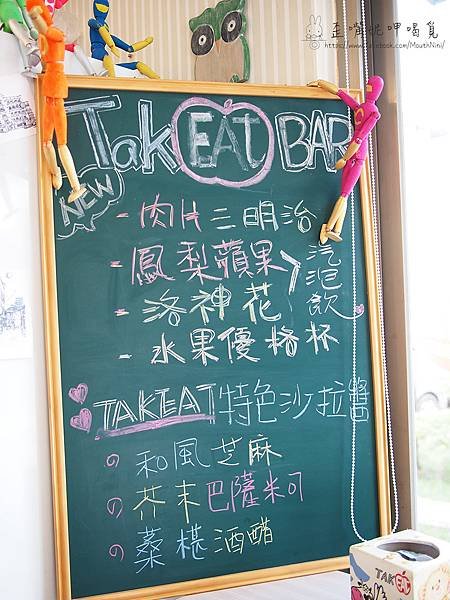 歪嘴妮呷喝覓
https://www.facebook.com/MouthNini/
TakEAT BAR
NEW
- 肉片三明治
- 鳳梨蘋果
- 洛神花
汽泡飲
- 水果優格杯
TAKEAT 特色沙拉醬
の 和風芝麻
の 芥末巴薩米可
の 桑椹酒醋
TAKEAT